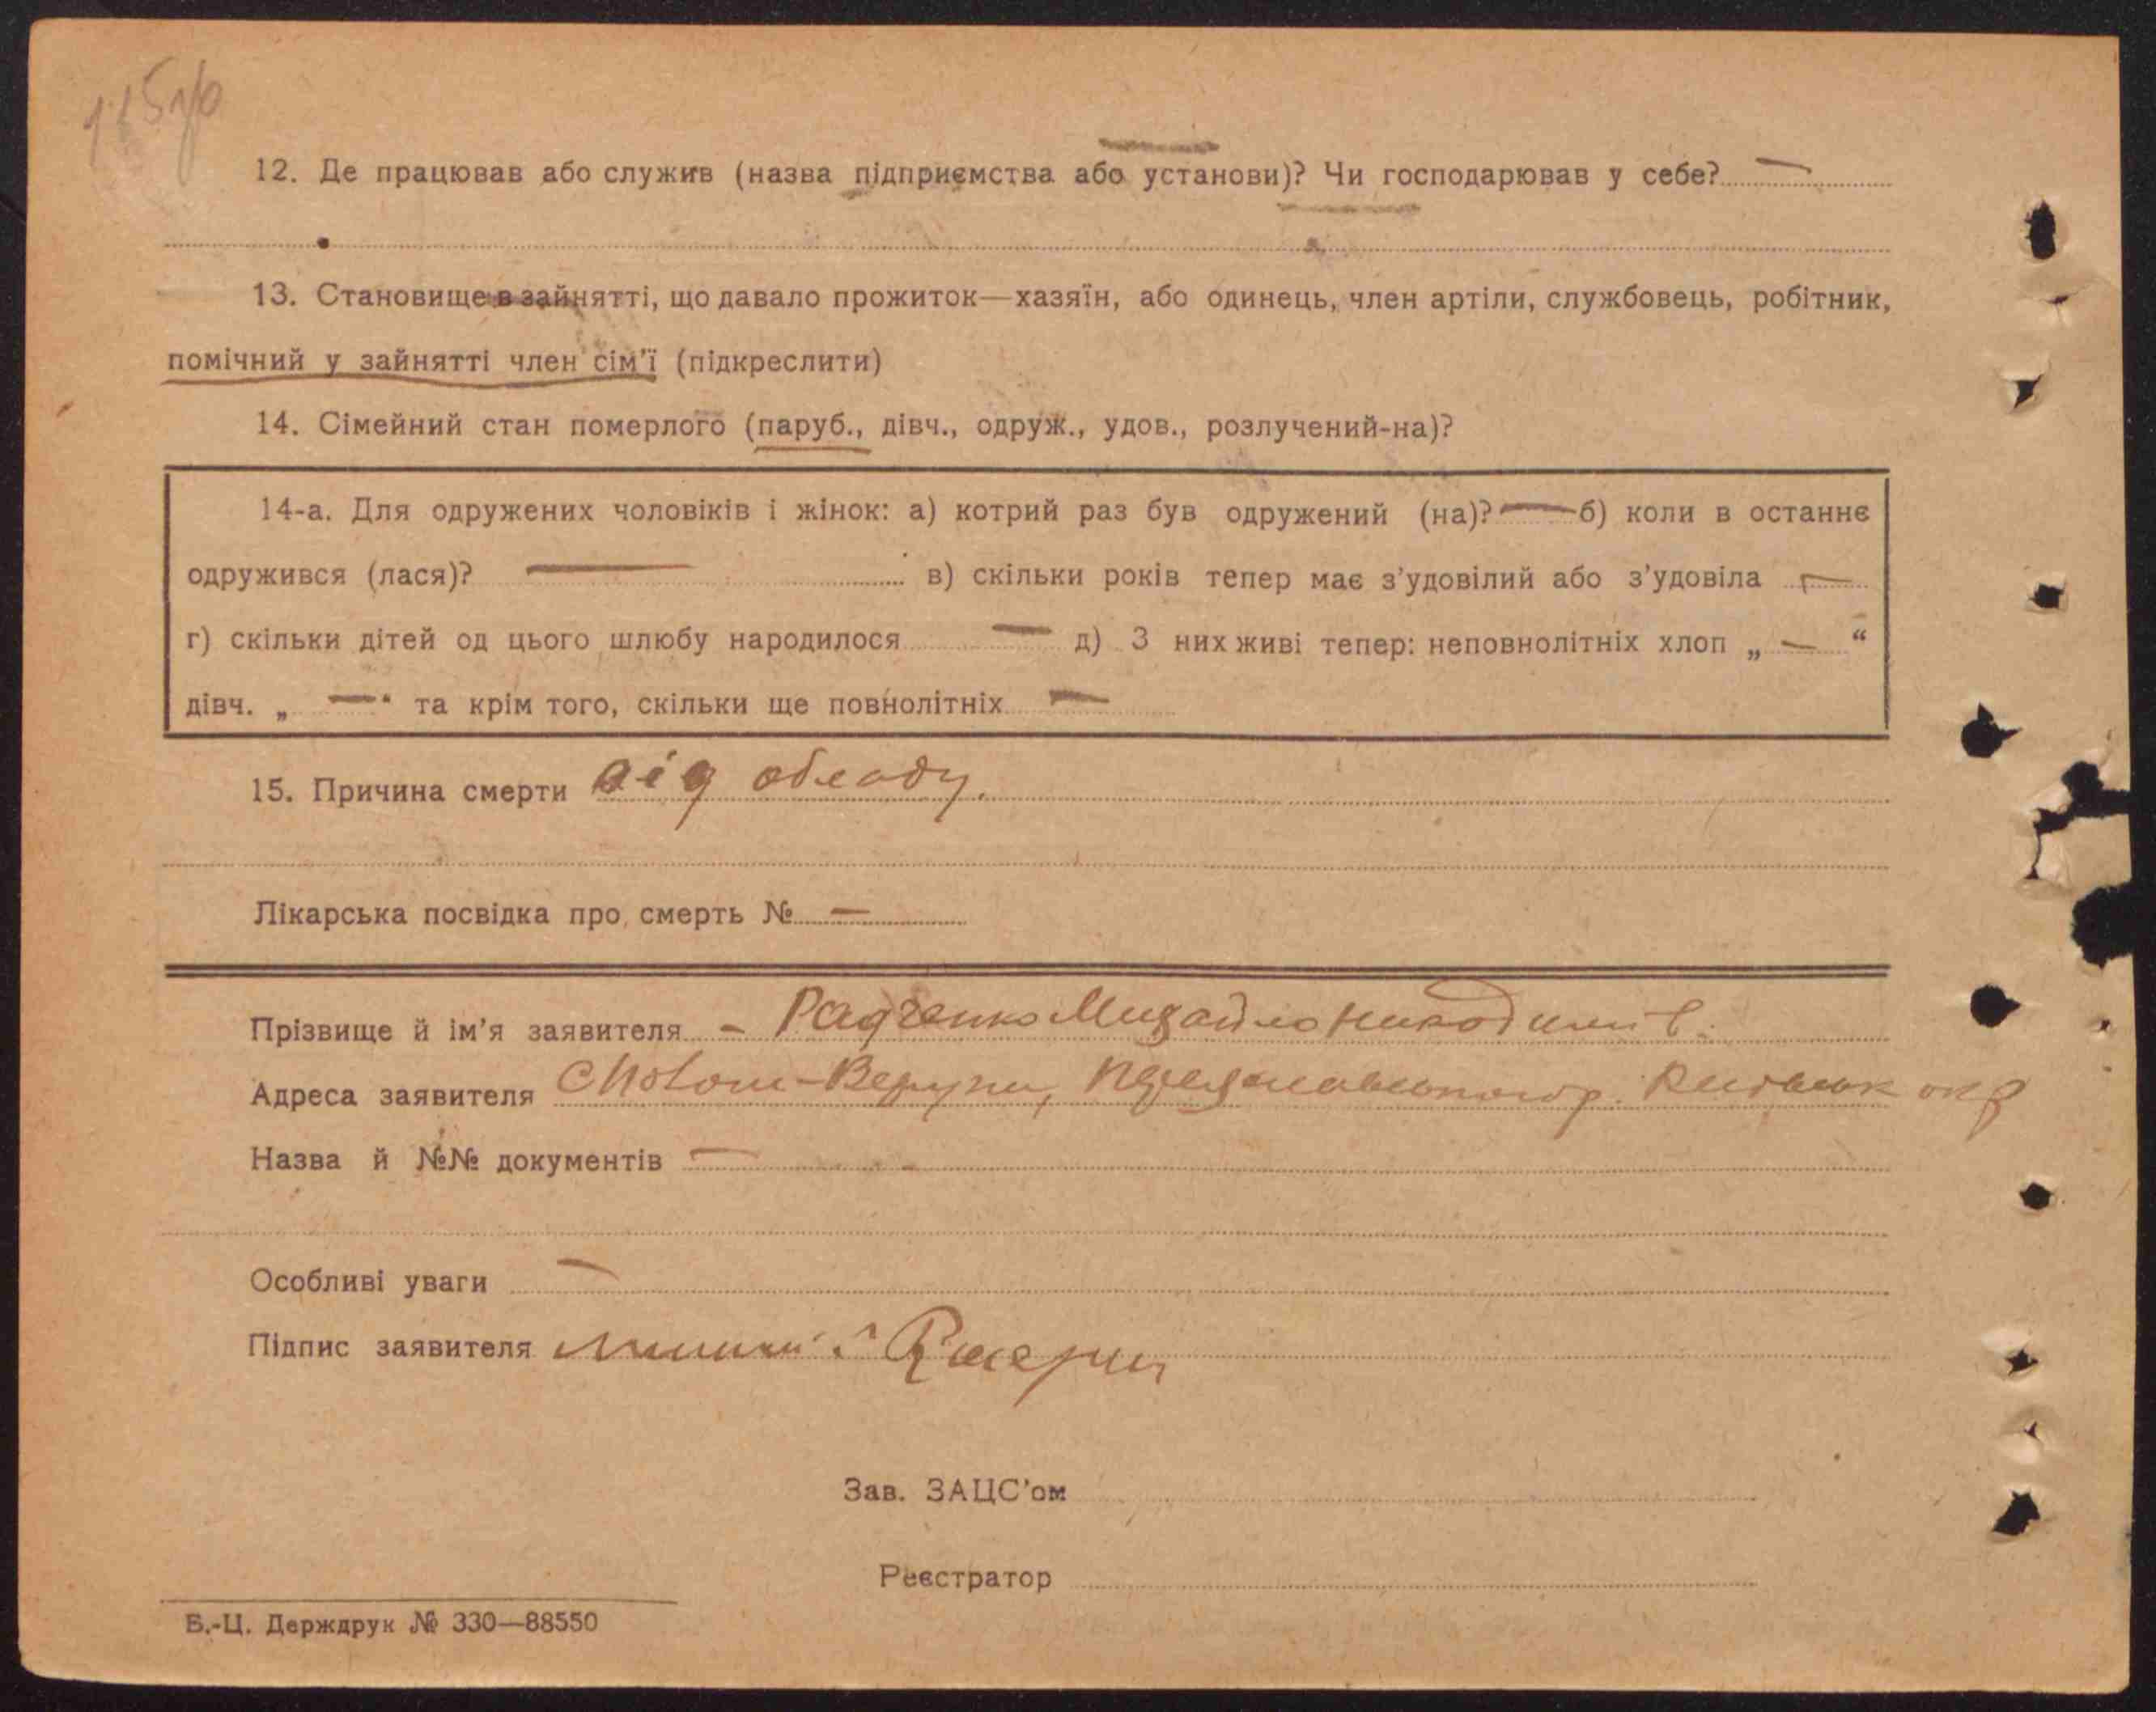 12. Де працював або служив (назва підприємства або установи)? Чи господарював у себе? —
13. Становище в зайнятті, що давало прожиток—хазяїн, або одинець, член артіли, службовець, робітник,
помічний у зайнятті член сім'ї (підкреслити)
14. Сімейний стан померлого (паруб., дівч., одруж., удов., розлучений-на)?
14-а. Для одружених чоловіків і жінок: а) котрий раз був одружений (на)? — б) коли в останнє
одружився (лася)? — в) скільки років тепер має з'удовілий або з'удовіла —
г) скільки дітей од цього шлюбу народилося — д) З них живі тепер: неповнолітніх хлоп „ — “
дівч. „ — “ та крім того, скільки ще повнолітніх —
15. Причина смерти від
Лікарська посвідка про смерть № —
Прізвище й ім'я заявителя - Радченко Михайло Никодимів.
Адреса заявителя
Назва й №№ документів —
Особливі уваги —
Підпис заявителя
Зав. ЗАЦС'ом
Реєстратор
Б.-Ц. Держдрук № 330—88550